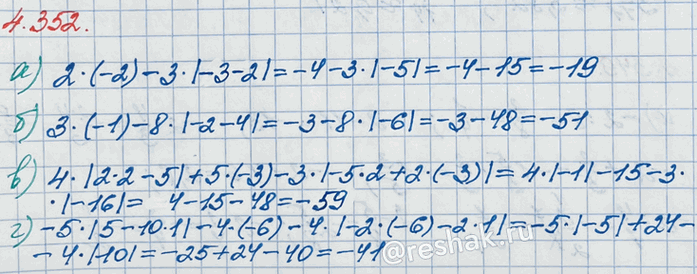 4.352.
а) 2·(-2)-3·|-3-2|=-4-3·|-5|=-4-15=-19
б) 3·(-1)-8·|-2-4|=-3-8·|-6|=-3-48=-51
в) 4·|2·2-5|+5·(-3)-3·|-5·2+2·(-3)|=4·|-1|-15-3·
·|-16|= 4-15-48=-59
г) -5·|5-10·1|-4·(-6)-4·|-2·(-6)-2·1|=-5·|-5|+24-
-4·|10|=-25+24-40=-41
@reshak.ru